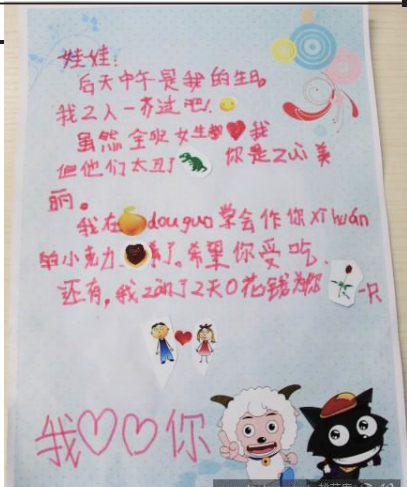 娃娃：
后天中午是我的生日。
我2人一齐过吧！
虽然全班女生都我
但他们太丑了 你是Zuì美
丽。
我在douguo学会作你Xǐ huán
的小克力了。希望你受吃、
还有，我了2天0花钱为你一只
我♡♡你